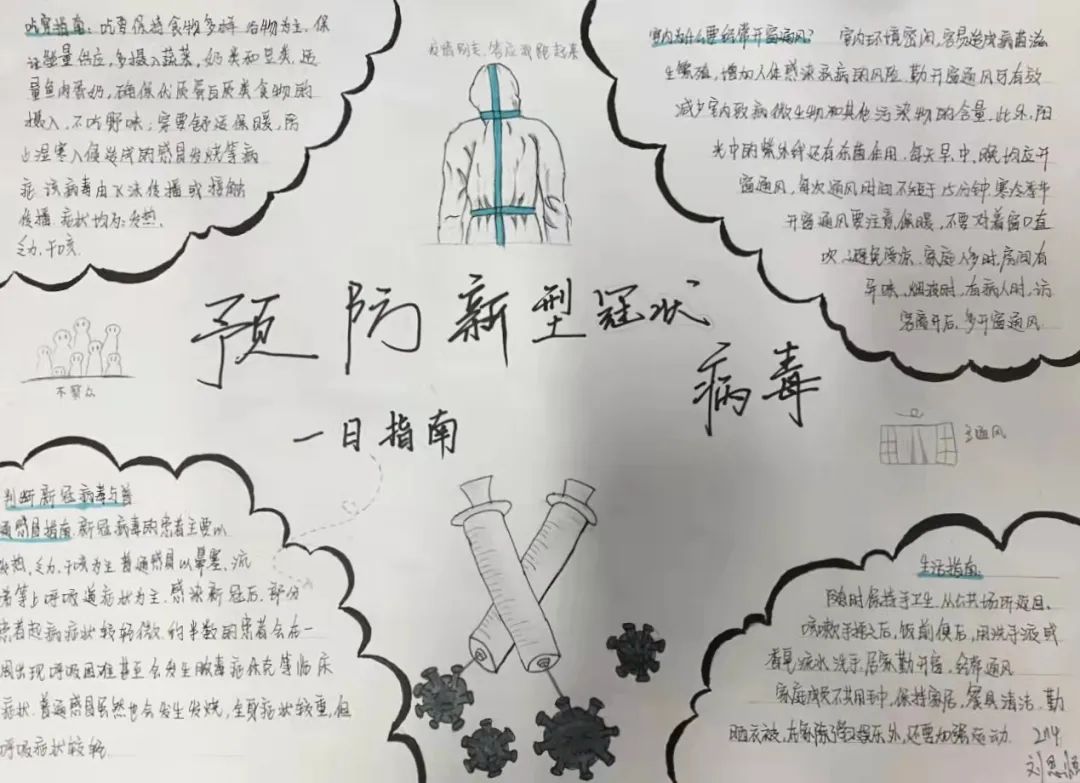 吃穿指南: 吃要保持食物多样 谷物为主, 保
证能量供应, 多摄入蔬菜, 奶类和豆类, 适
量鱼肉蛋奶, 确保优质蛋白质类食物的
摄入, 不吃野味; 穿要舒适保暖, 防
止湿寒入侵造成的感冒发烧等病
症. 该病毒由飞沫传播或接触
传播. 症状均为: 发热,
乏力, 干咳.
疫情别走, 等应我跑起来
室内为什么要经常开窗通风? 室内环境密闭, 容易造成病菌滋
生繁殖, 增加人体感染疾病的风险. 勤开窗通风可有效
减少室内致病微生物和其他污染物的含量. 此外, 阳
光中的紫外线还有杀菌作用. 每天早, 中, 晚均应开
窗通风, 每次通风时间不短于15分钟. 寒冷季节
开窗通风要注意保暖, 不要对着窗口直
吹, 避免受凉. 家庭人多时, 房间有
异味, 烟波时, 有病人时, 访
客离开后, 多开窗通风.
预防新型冠状
病毒
一日指南
不聚众
多通风
判断新冠病毒与普
通感冒指南: 新冠病毒的患者主要以
发热, 乏力, 干咳为主. 普通感冒以鼻塞, 流
涕等上呼吸道症状为主. 感染新冠后, 部份
患者起病症状较轻微. 约半数的患者会在一
周出现呼吸困难甚至会发生脓毒症休克等临床
症状. 普通感冒虽然也会发生发烧, 全身症状较重, 但
呼吸症状较轻.
生活指南
随时保持手卫生. 从公共场所返回,
咳嗽手捂之后, 饭前便后, 用洗手液或
香皂, 流水洗手, 居家勤开窗, 经常通风
家庭成员不共用毛巾, 保持家居, 餐具清洁. 勤
晒衣被, 在家除了 娱乐外, 还要加强运动.
刘恩